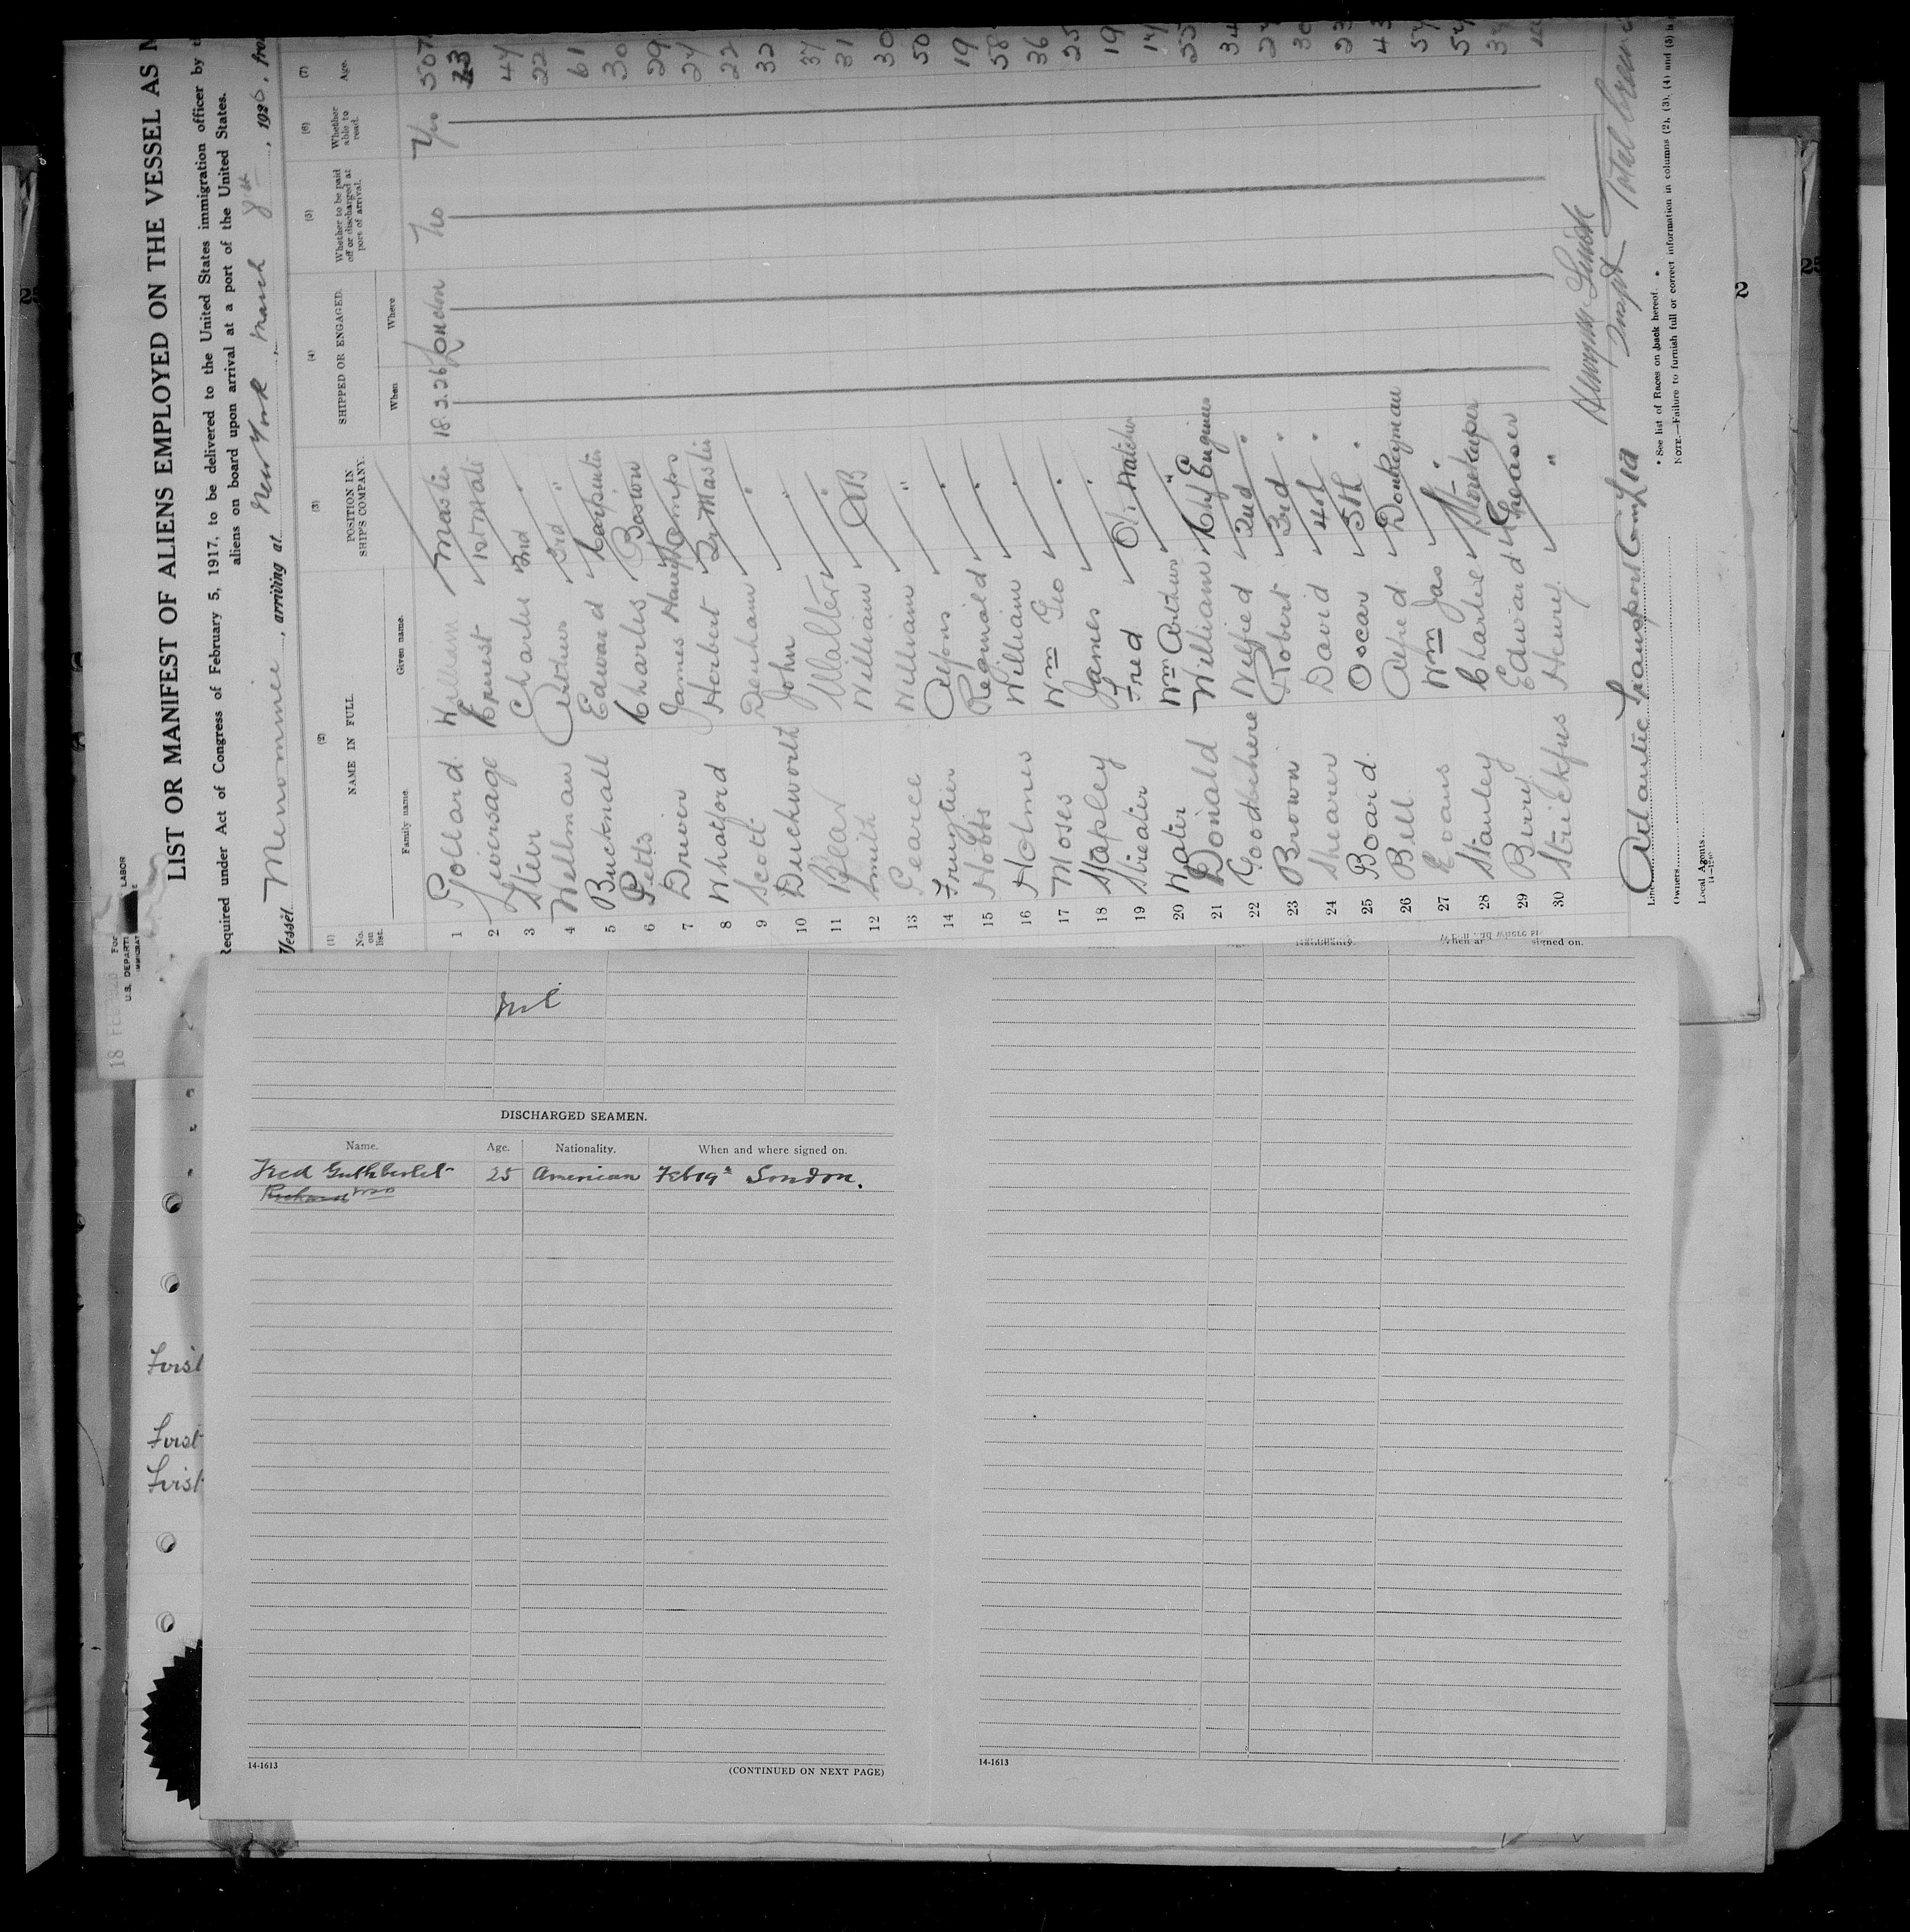 18 FEB
U.S. DEPARTMENT LABOR
LIST OR MANIFEST OF ALIENS EMPLOYED ON THE VESSEL AS
Required under Act of Congress of February 5, 1917, to be delivered to the United States immigration officer by
aliens on board upon arrival at a port of the United States.
Vessel Menominee, arriving at New York, March 8th, 1926, from
(1) (2) (3) (4) (5) (6) (7)
No. on list. NAME IN FULL POSITION IN SHIP'S COMPANY. SHIPPED OR ENGAGED. Whether to be paid off or discharged at port of arrival. Whether able to read. Age.
Family name. Given name. When Where
1 Pollard William Master 18.2.26 London No Yes 50
2 Liversage Ernest 1st Mate
3 Steer Charles 2nd " 44
4 Wellman Arthur 3rd " 22
5 Bucknall Edward Carpenter 61
6 Petts Charles Bosun 30
7 Driver James Harry Lamps 29
8 Whatford Herbert Qr Master 24
9 Scott Denham " 22
10 Duckworth John " 32
11 Blax Walter " 37
12 Smith William AB 31
13 Pearce William " 30
14 Alfons " 50
15 Hobbs Reginald " 19
16 Holmes William " 58
17 Moses Wm Geo " 36
18 Stapley James " 25
19 Streater Fred 19
20 Water Wm Arthur " 17
21 Donald William Chief Engineer
22 Wilfred 2nd " 34
23 Brown Robert 3rd "
24 Shearer David 4th " 30
25 Board Oscar 5th " 23
26 Bell Alfred Donkeyman 43
27 Evans Wm Jas "
28 Stanley Charlie Storekeeper
29 Berry Edward Greaser
30 Strickfus Henry "
Line Atlantic Transport Co
Owners
Local Agents
* See list of Races on back hereof.
NOTE.—Failure to furnish full or correct information in columns (2), (3), (4) and (5) is
Total Crew
2
nil
signed on.
DISCHARGED SEAMEN.
Name. Age. Nationality. When and where signed on.
Fred Guthberlet 25 American Feb 19th London.
Richard
First
First
First
14-1613 (CONTINUED ON NEXT PAGE)
14-1613